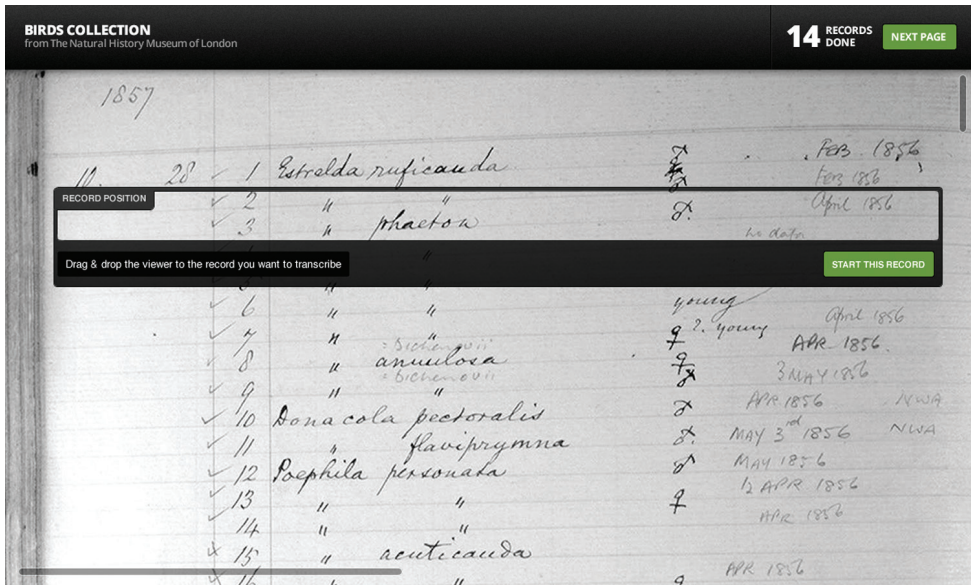 BIRDS COLLECTION
from The Natural History Museum of London
14 RECORDS DONE
NEXT PAGE
1857
10. 28 1 Estrelda ruficauda ♂ FEB. 1856
FEB 1856
RECORD POSITION
2 " " ♂. April 1856
3 " phaeton
no data
"
Drag & drop the viewer to the record you want to transcribe
START THIS RECORD
6 " " young
April 1856
7 " " ♀ ?. young APR. 1856.
= Bichenovii
8 " annulosa ♀ 3 MAY 1856
= Bichenovii
9 " " ♂ APR. 1856 NWA
10 Donacola pectoralis ♂
11 " flaviprymna ♂. MAY 3rd 1856 NWA
12 Poephila personata ♂ MAY 1856
13 " " ♀ 12 APR 1856
14 " " APR 1856
15 " acuticauda
16 " " ♀ APR 1856